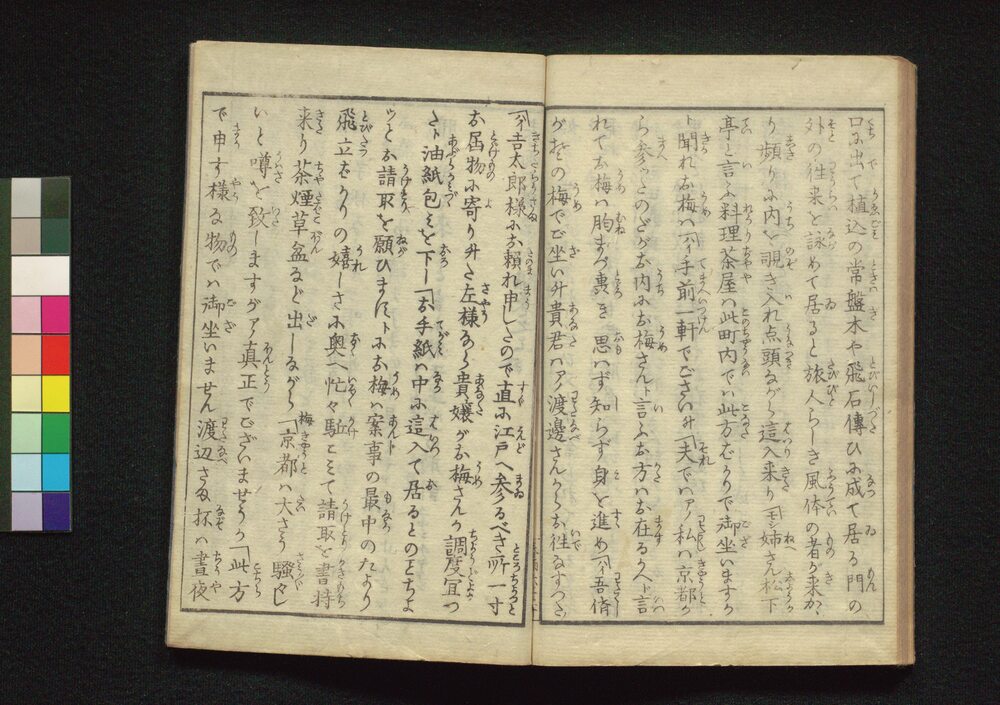 口に出て植込の常盤木や飛石傳ひに成て居る門の
外の徃来を詠めて居ると旅人らしき風体の者が来かゝ
り頻りに内を覗き入れ点頭ながら這入来りモシ姉さん松下
亭と言ふ料理茶屋は此町内では此方ばかりで御坐いますか
ト聞れお梅はハイ手前一軒でござい升「夫ではアノ私は京都か
ら参ツたのだがお内にお梅さんト言ふお方はお在るかへト言
れてお梅は胸まづ轟き思はず知らず身を進めハイ吾儕
がその梅でござ坐い升貴君はアノ渡邊さんからお徃なすつた
「ハイ吉太郎様にお頼れ申したので直に江戸へ参るべき所一寸
お届物に寄り升た左様なら貴嬢がお梅さんか調度宜つ
たト油紙包みを下し「お手紙は中に這入て居るとのことちよ
ツとお請取を願ひますトにお梅は案事の最中のたより
飛立ばかりの嬉しさに奥へ忙々駈こみて請取を書持
来り茶煙草盆など出しながら梅「京都は大さう騒々し
いと噂を致しますがアノ真正でございませうか「此方
で申す様な物では御坐いません渡辺さま抔は昼夜